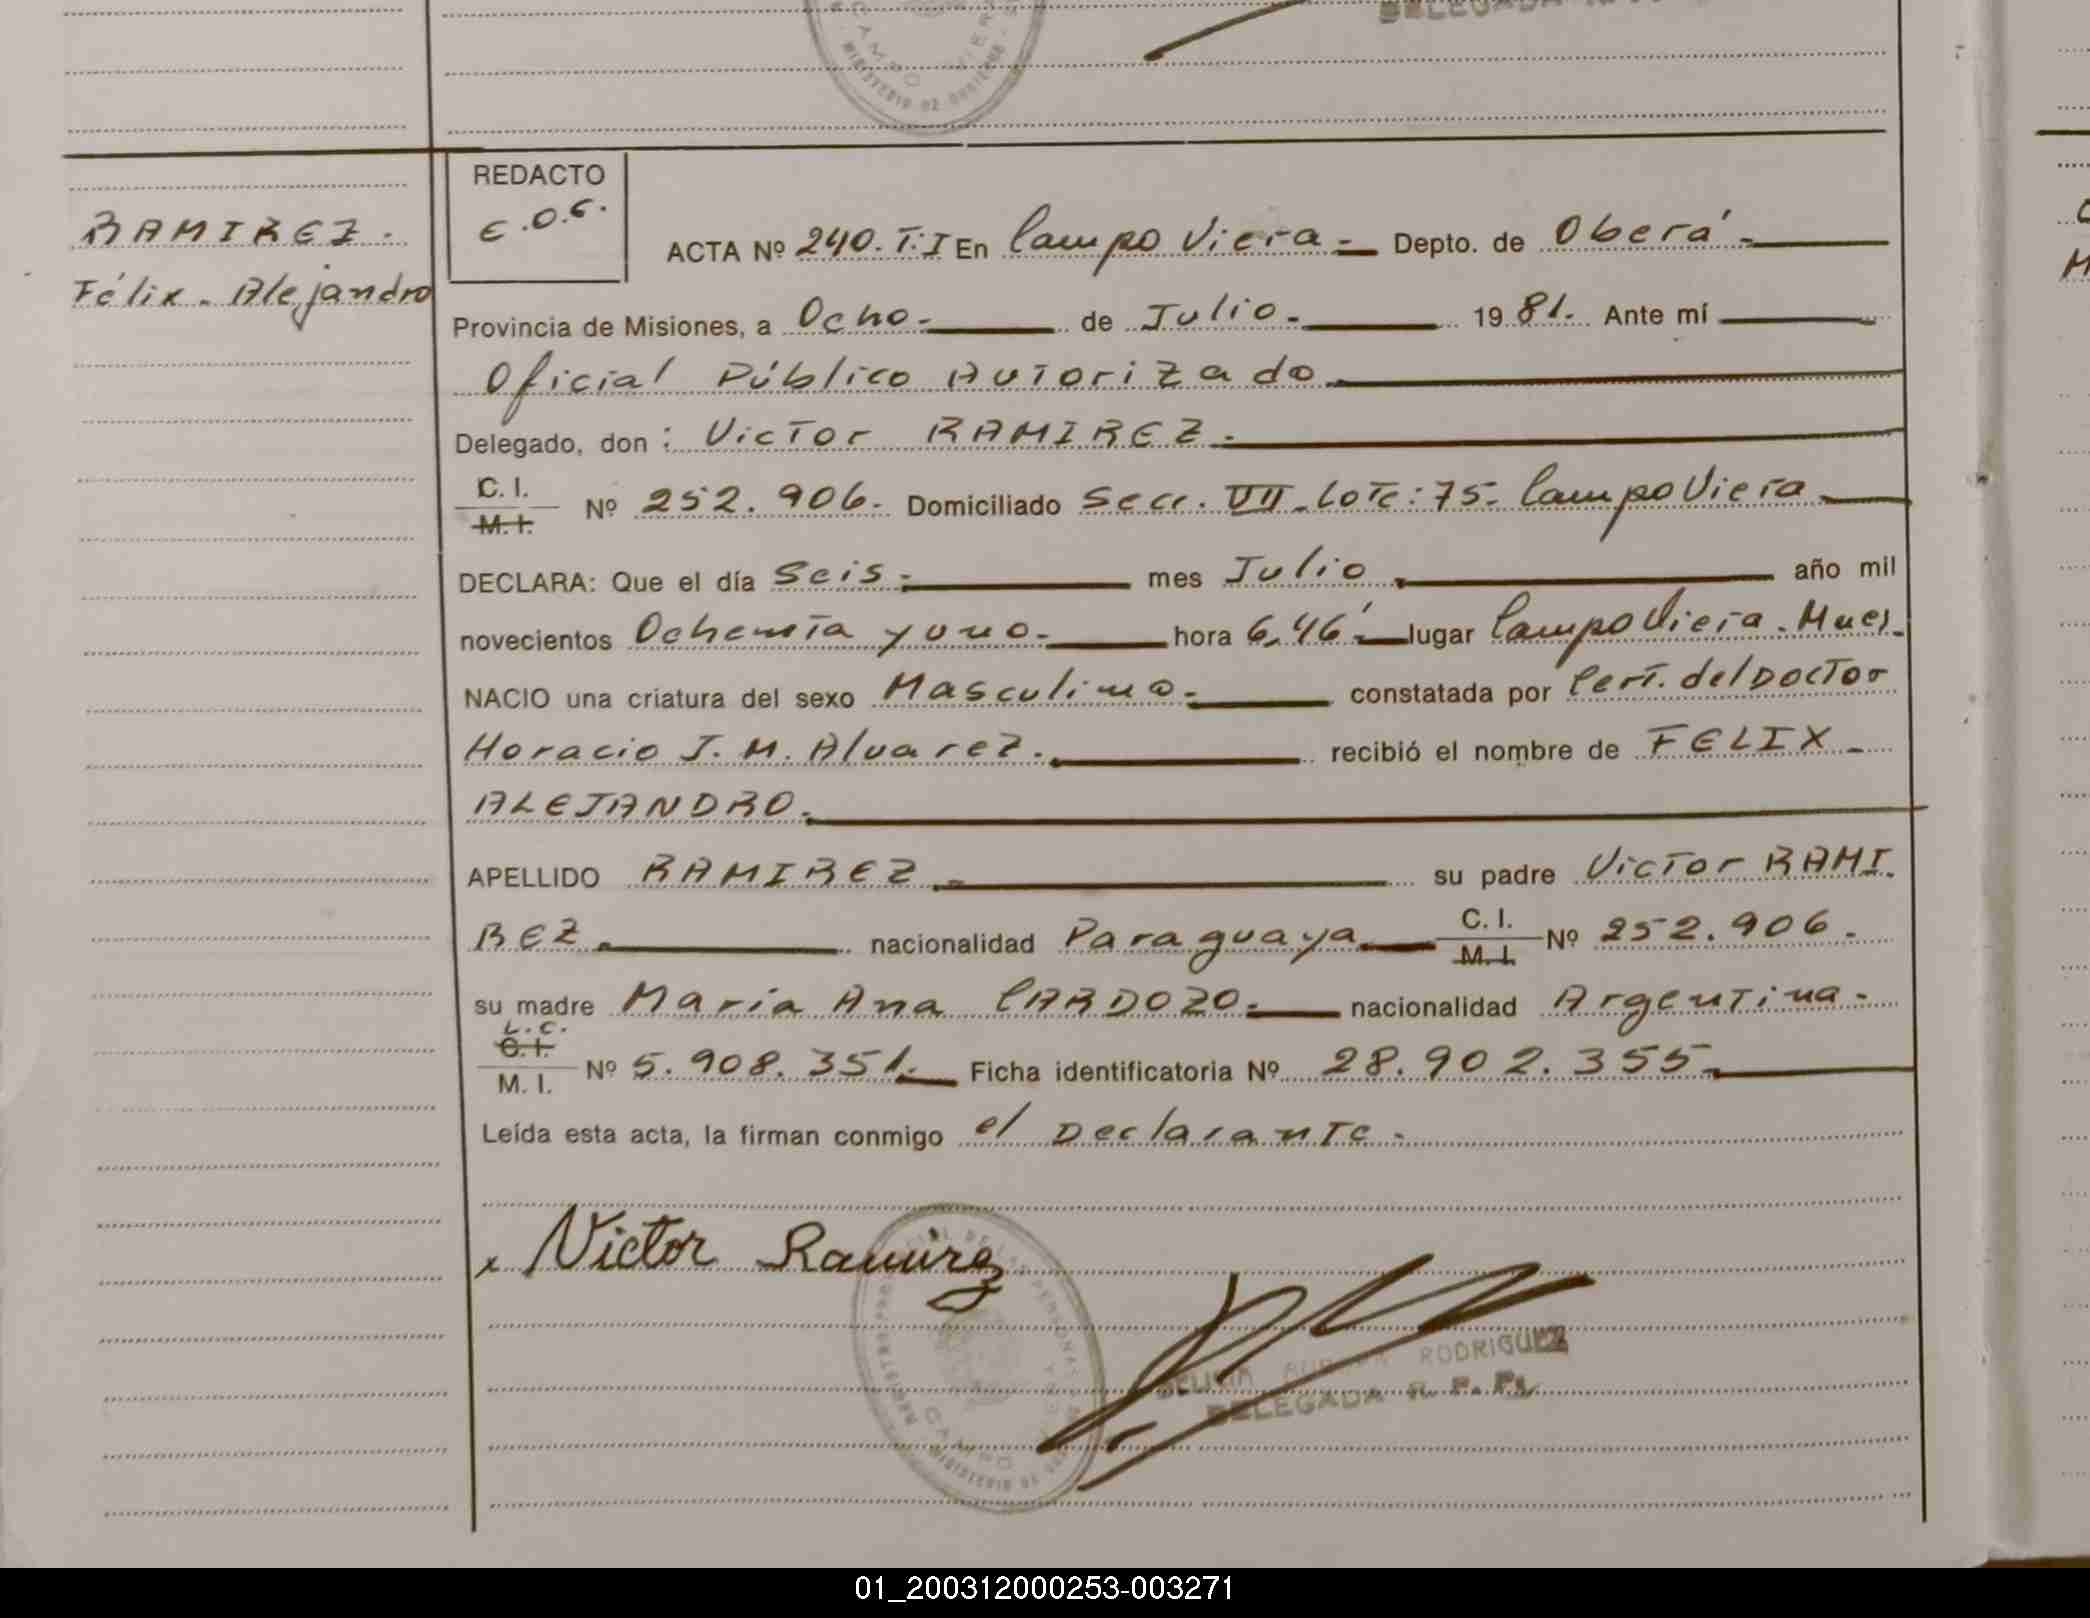 RAMIREZ.
Félix. Alejandro
REDACTO
E.O.G.
ACTA Nº 240. T.I En Campo Viera.- Depto. de Oberá.-
Provincia de Misiones, a Ocho.- de Julio.- 19 81. Ante mí
Oficial Público Autorizado
Delegado, don : Victor RAMIREZ.-
C. I.
M. I. Nº 252. 906.- Domiciliado Secc. VII. Lote: 75- Campo Viera
DECLARA: Que el día Seis.- mes Julio año mil
novecientos Ochenta y uno.- hora 6,46' lugar Campo Viera.
NACIO una criatura del sexo Masculino.- constatada por Cert. del Doctor
Horacio J. M. Alvarez. recibió el nombre de FELIX -
ALEJANDRO.
APELLIDO RAMIREZ - su padre Victor RAMI.
REZ nacionalidad Paraguaya C. I.
M. I. Nº 252.906.
su madre María Ana CARDOZO.- nacionalidad Argentina-
L.C.
C. I.
M. I. Nº 5. 908. 351.- Ficha identificatoria Nº 28. 902. 355-
Leída esta acta, la firman conmigo el Declarante.
x Victor Ramirez
RODRIGUEZ
DELEGADA R. P. P.
CAMPO
01_200312000253-003271